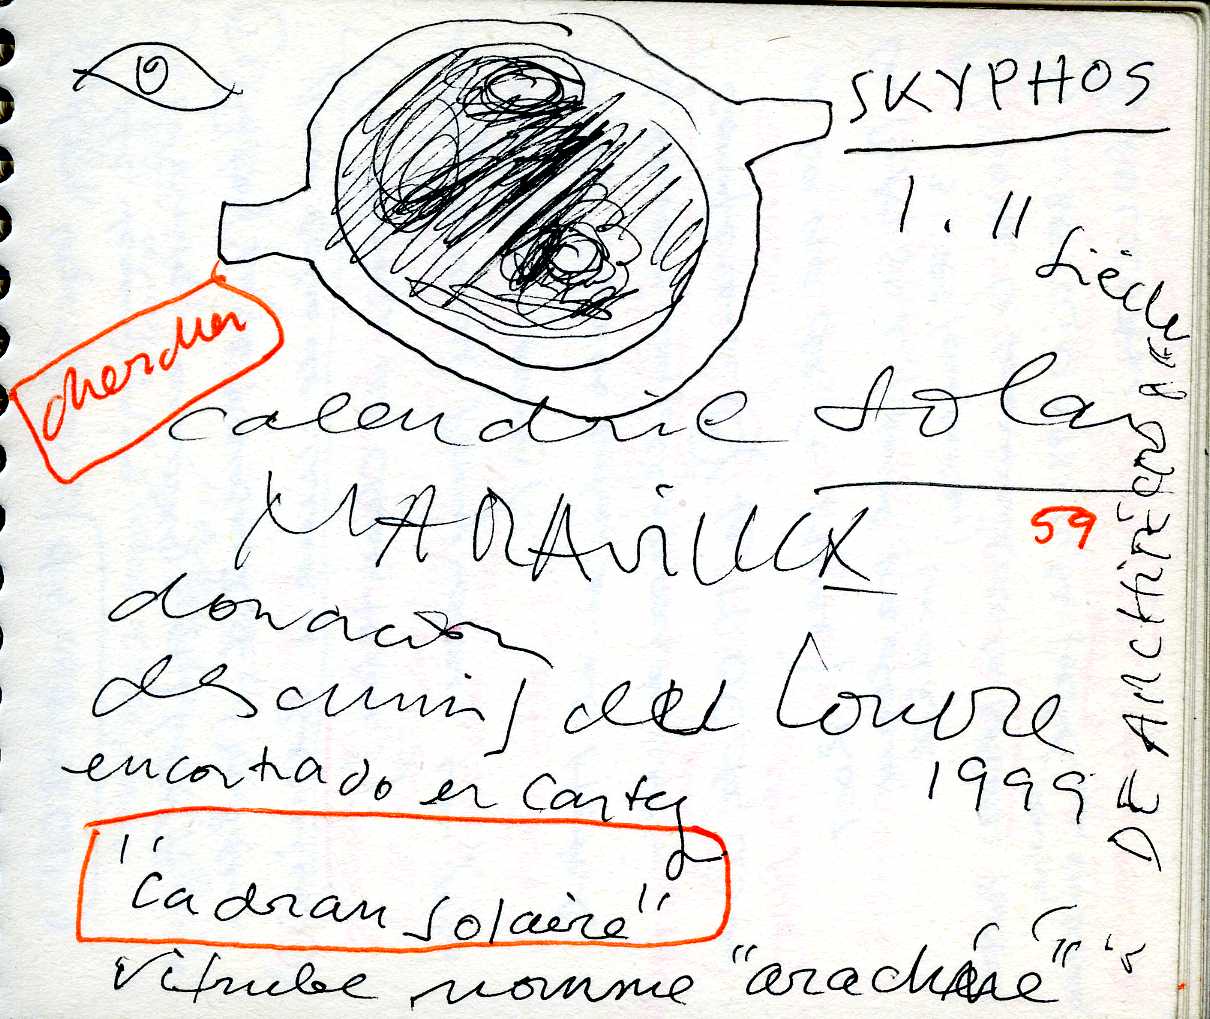 SKYPHOS
1. 11 Siècle
chercher
calendrie solar
MARAVILLA
59
donación
des amis del Louvre
encontrado en Cartag
1999
"cadran solaire"
Vitrube nomme "arachné"